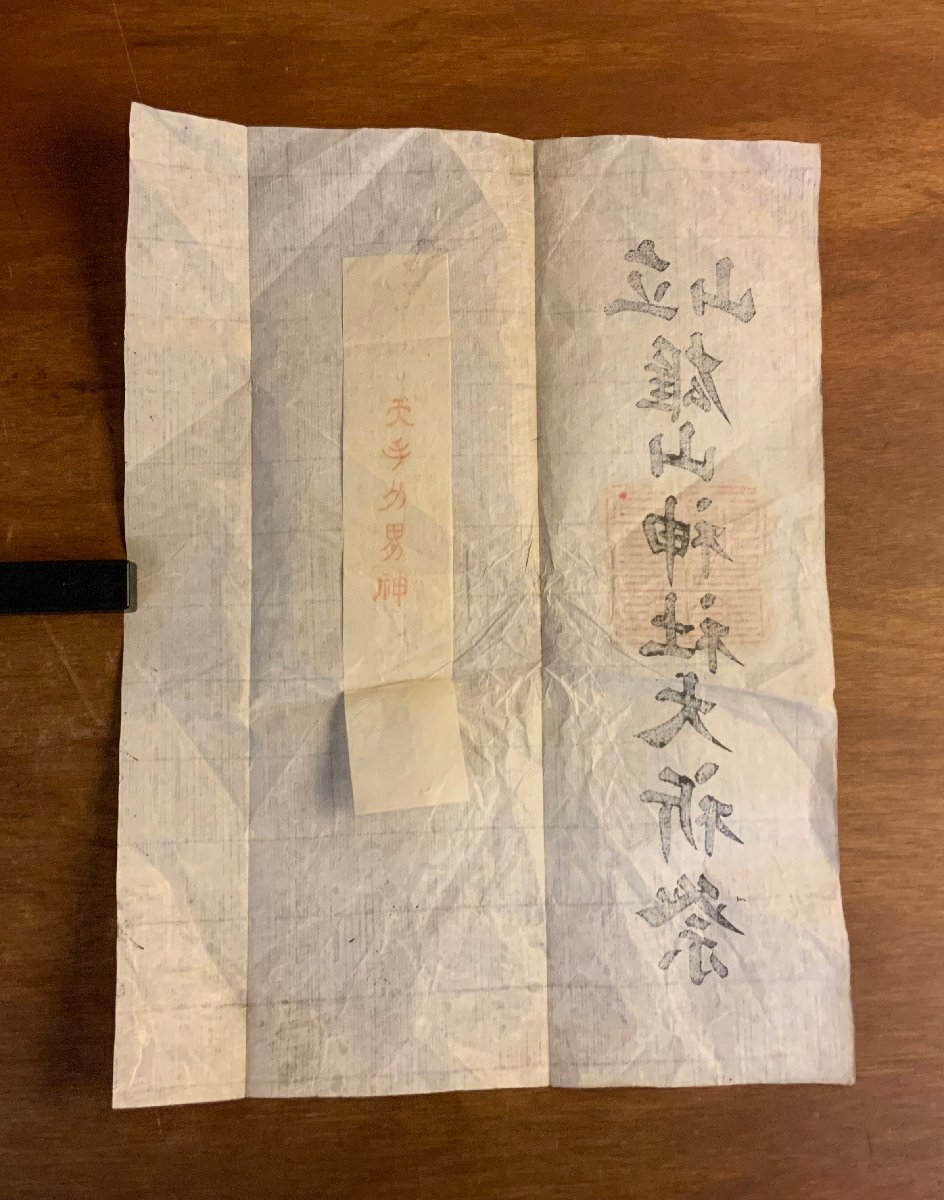 立山
雄山神社大祈祭
天手力男神